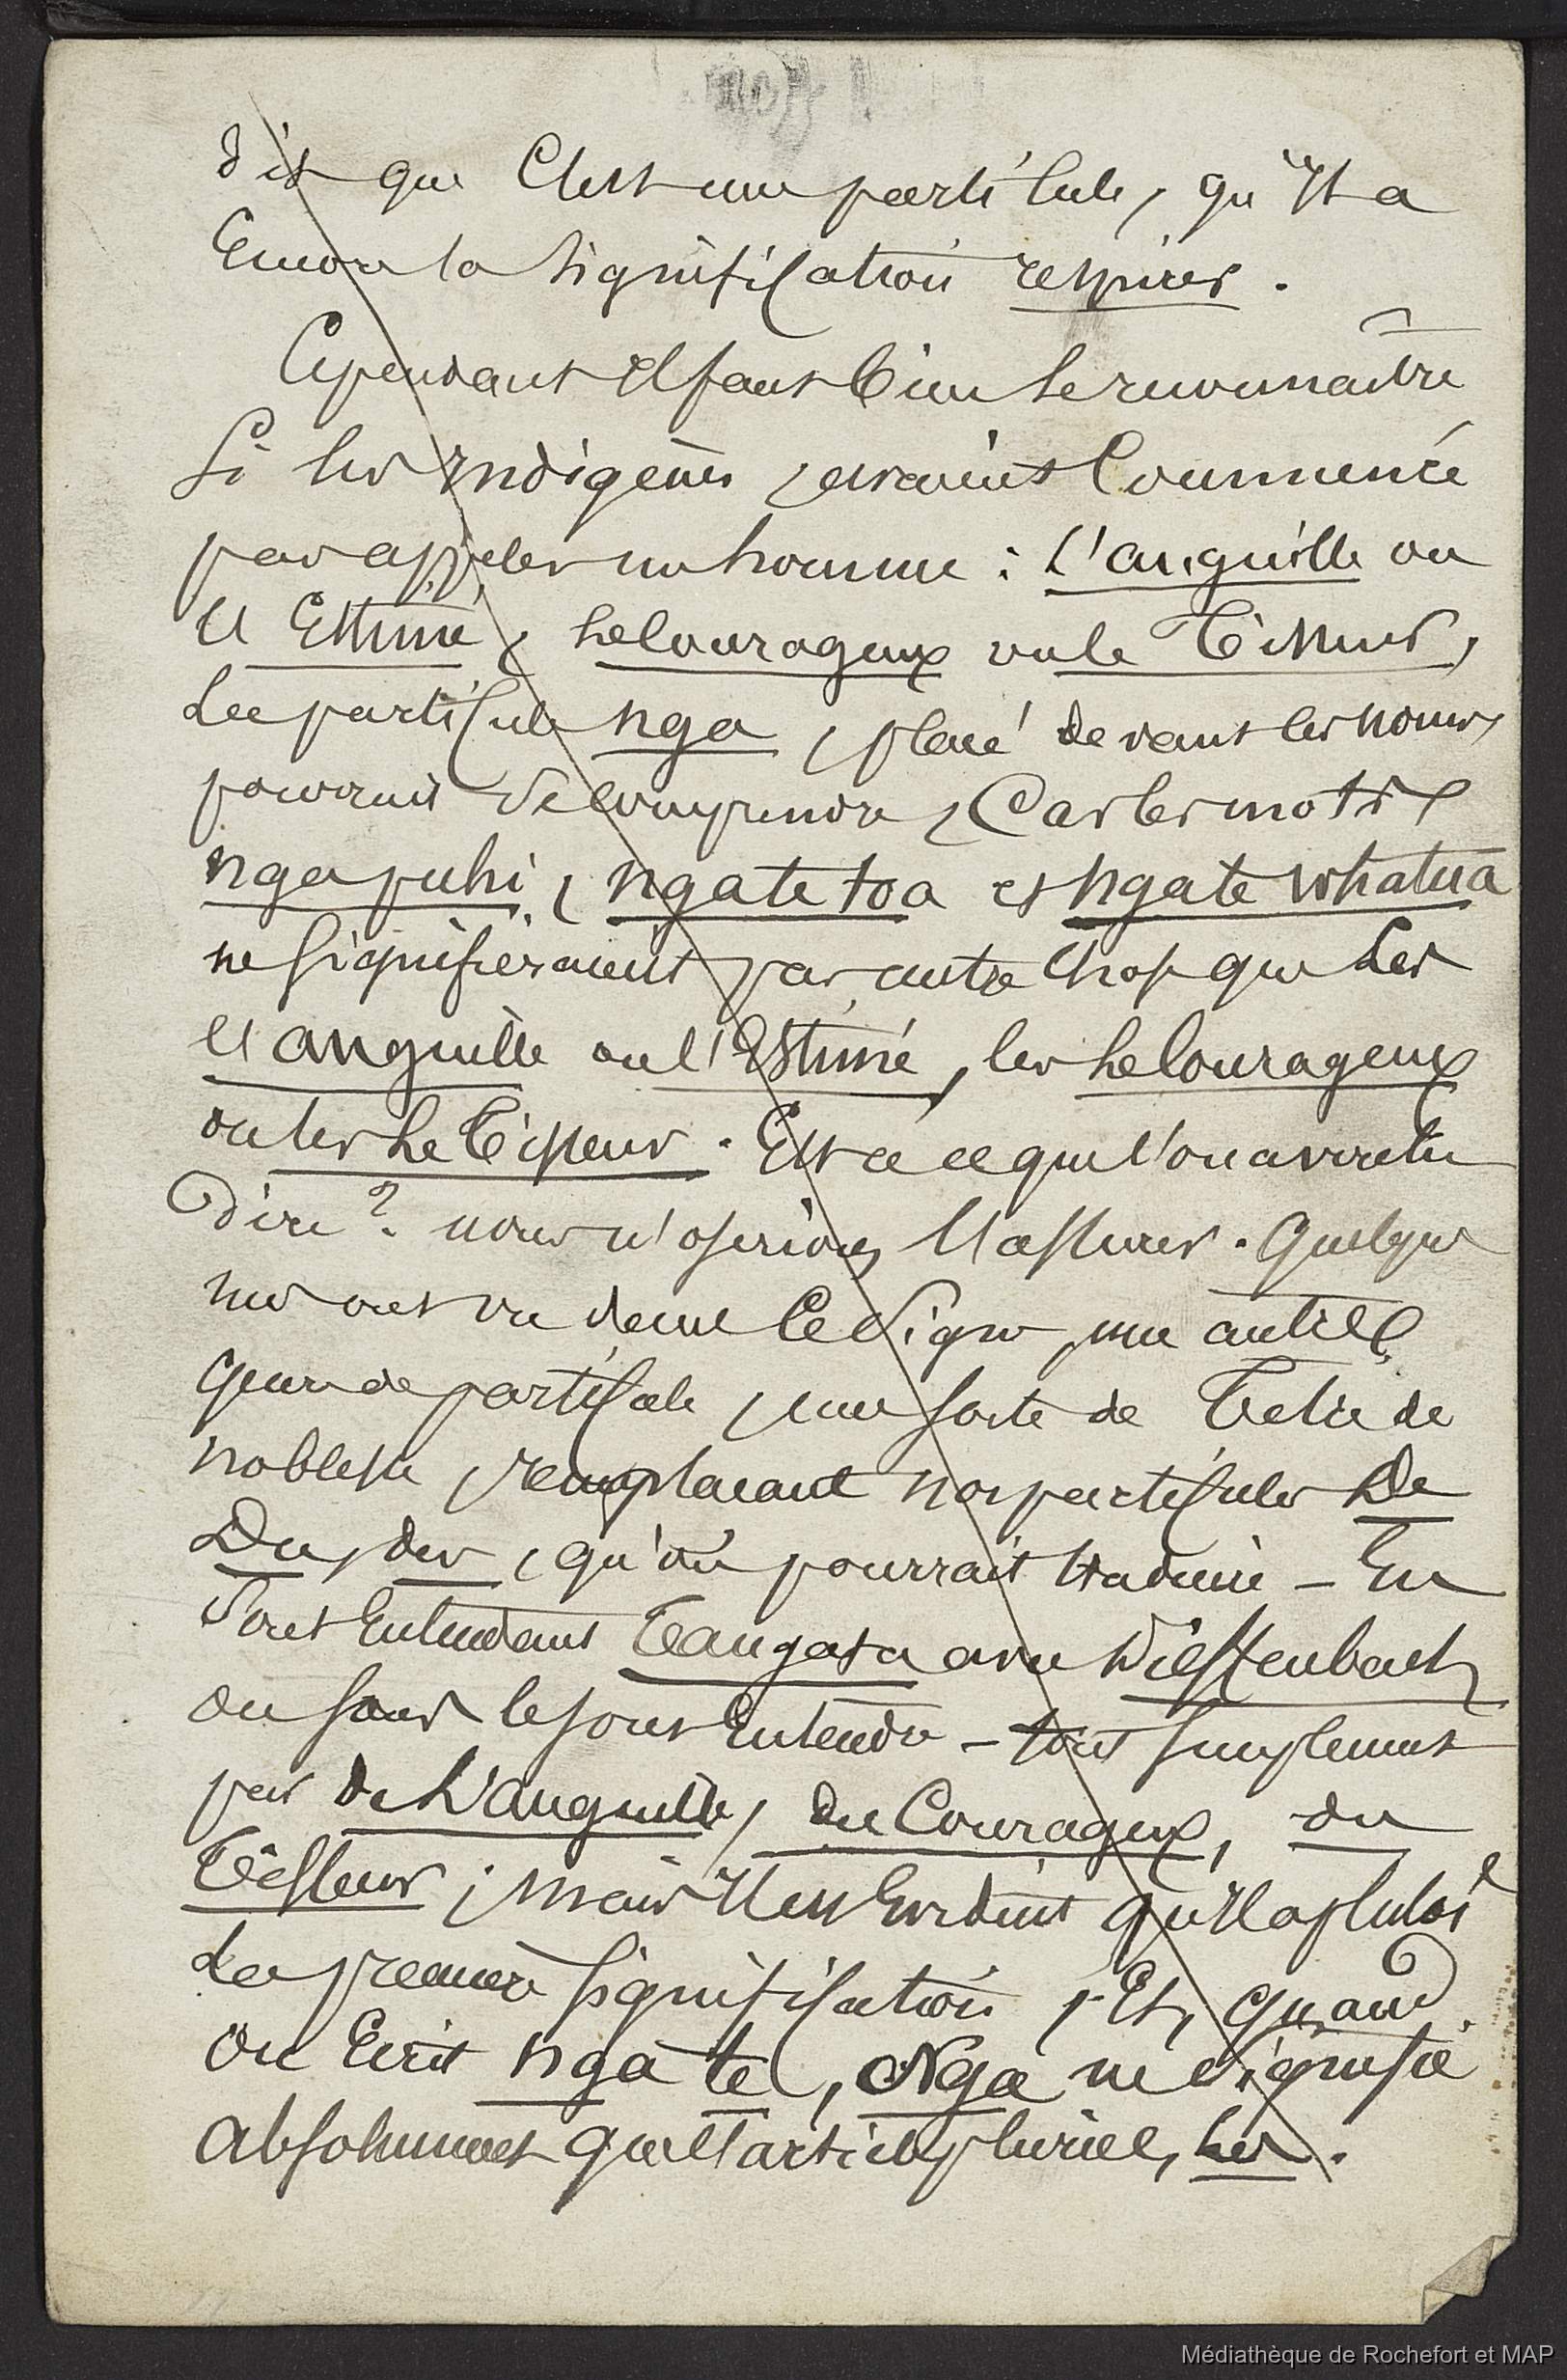 dit que C'est une particule, qu'Il a
Encore la signification respirer.
Cependant Il faut bien le reconnaître
Si les Indigènes, avaient Commencé
par appeler un homme : L'anguille ou
L'Estimé, le Courageux ou le Tisseur,
La particule nga, placé devant les noms,
pourrait se comprendre, Car les mots
ngapuhi, ngatetoa et ngate whatua
ne signifieraient pas autre Chose que Les
l'anguille ou l'Estimé, les le Courageux
ou les Le Tisseur. Est ce ce que l'on a voulu
Dire ? nous n'oserions l'assurer. Quelques
uns ont vu dans Ce Signe, une autre
genre de particule, une sorte de Titre de
noblesse, remplacant nos particules De
Du, des, qu'on pourrait traduire – En
Sous Entendant Tangata avec Dieffenbach
ou sans le sous Entendre – tout simplement
par de L'anguille, du Courageux, du
Tisseur ; mais Il est Evident qu'Il a plutôt
La première signification, Et, quand
on Ecrit nga te, Nga ne Signifie
Absolument que l'article pluriel, Les.
Médiathèque de Rochefort et MAP